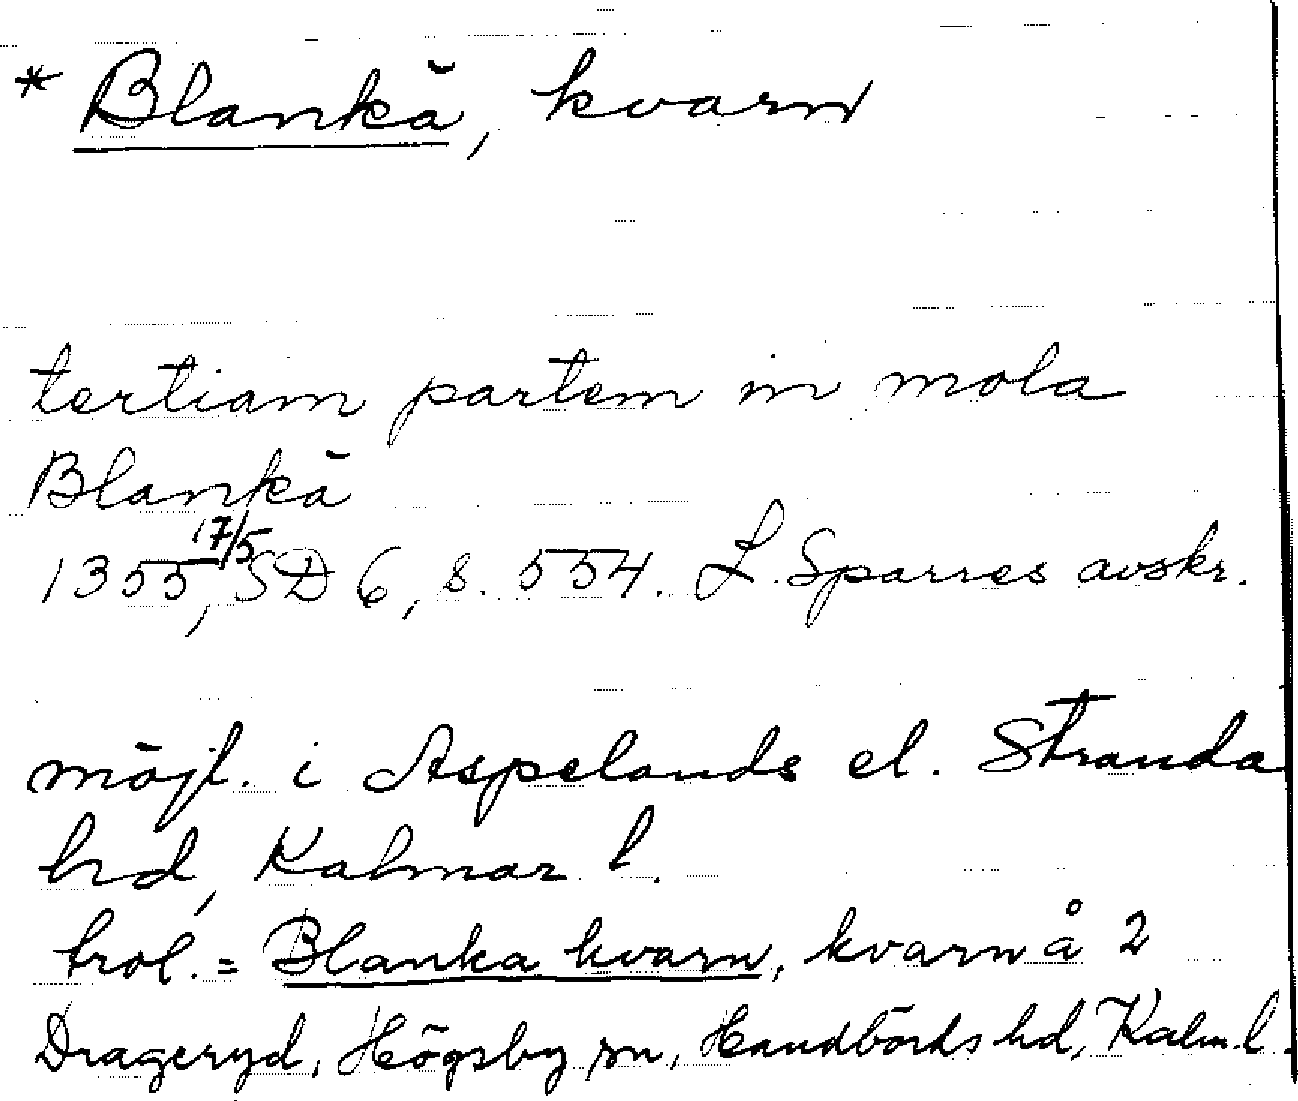 * Blankä, kvarn
tertiam partem in mola
Blankä
1355 17/5, SD 6, s. 554. L. Sparres avskr.
möjl. i Aspelands el. Stranda
hd, Kalmar l.
trol. = Blanka kvarn, kvarn å 2
Drageryd, Högsby sn, Handbörds hd, Kalm. l.